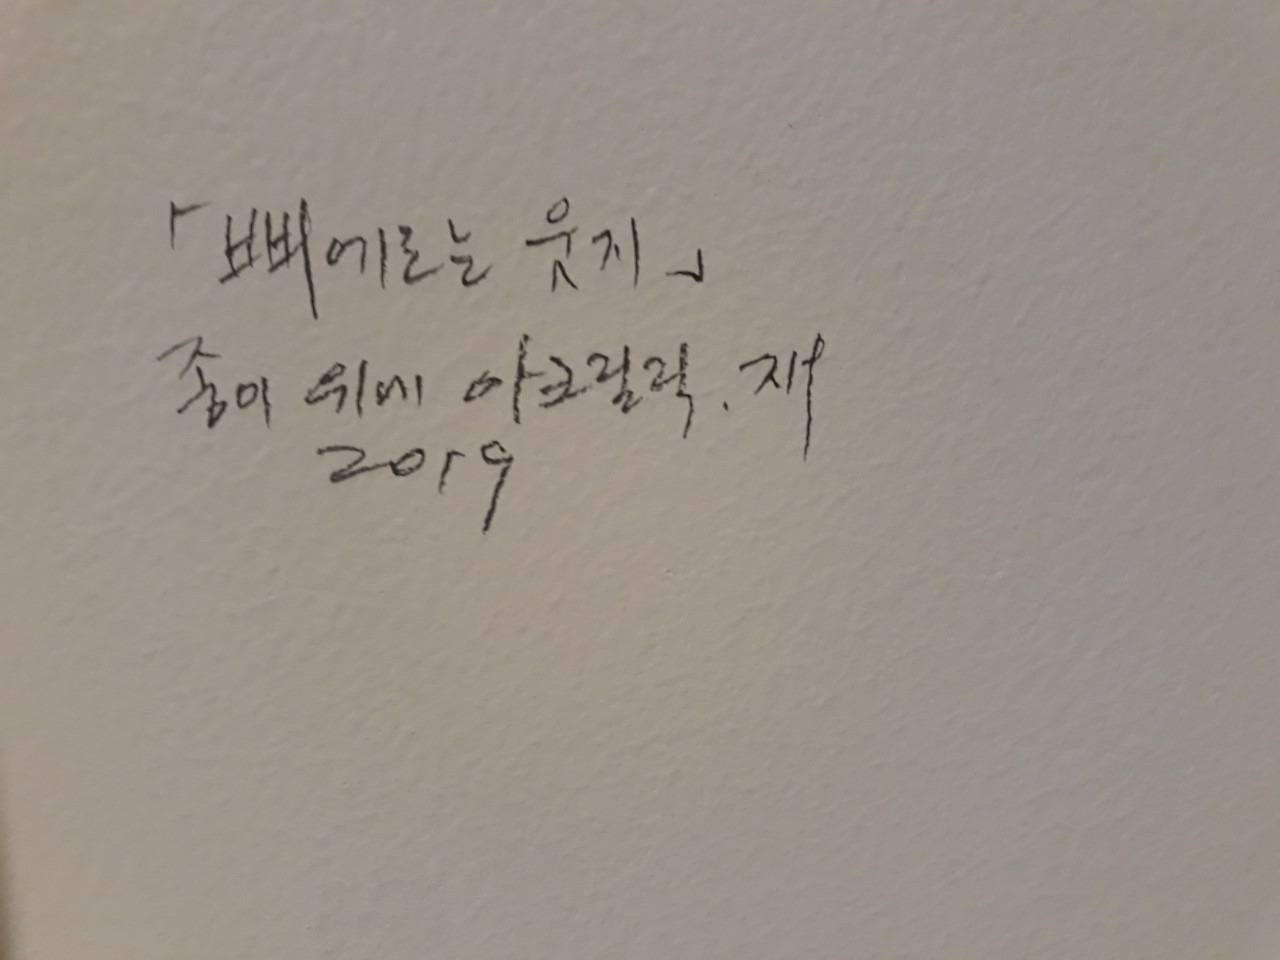 「삐에로는 웃지」
종이 위에 아크릴릭. 재
2019